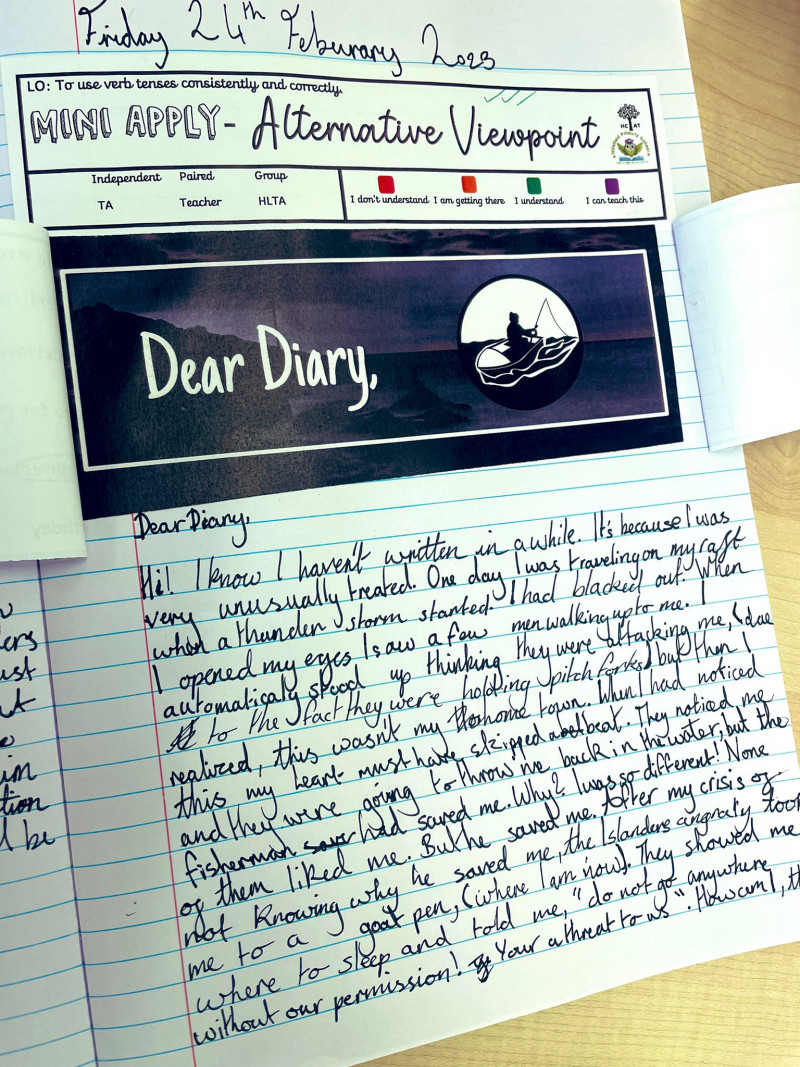 Friday 24th Feburary 2023
LO: To use verb tenses consistently and correctly.
MINI APPLY - Alternative Viewpoint
HC AT
Independent Paired Group
TA Teacher HLTA
I don't understand I am getting there I understand I can teach this
Dear Diary,
Dear Diary,
Hi! I know I haven't written in a while. It's because I was
very unusually treated. One day I was traveling on my raft
when a thunder storm started. I had blacked out. When
I opened my eyes I saw a few men walking up to me. I
automaticaly stood up thinking they were attacking me, (due
to the fact they were holding pitch forks) but then I
realized, this wasn't my home town. When I had noticed
this my heart must have skipped a beat. They noticed me
and they were going to throw me back in the water, but the
fisherman had saved me. Why? I was so different! None
of them liked me. But he saved me. After my crisis of
not knowing why he saved me, the Islanders angraly took
me to a goat pen, (where I am now). They showed me
where to sleep and told me, "do not go anywhere
without our permission! Your a threat to us". How am I, th
ers
ust
ut
im
tion
l be